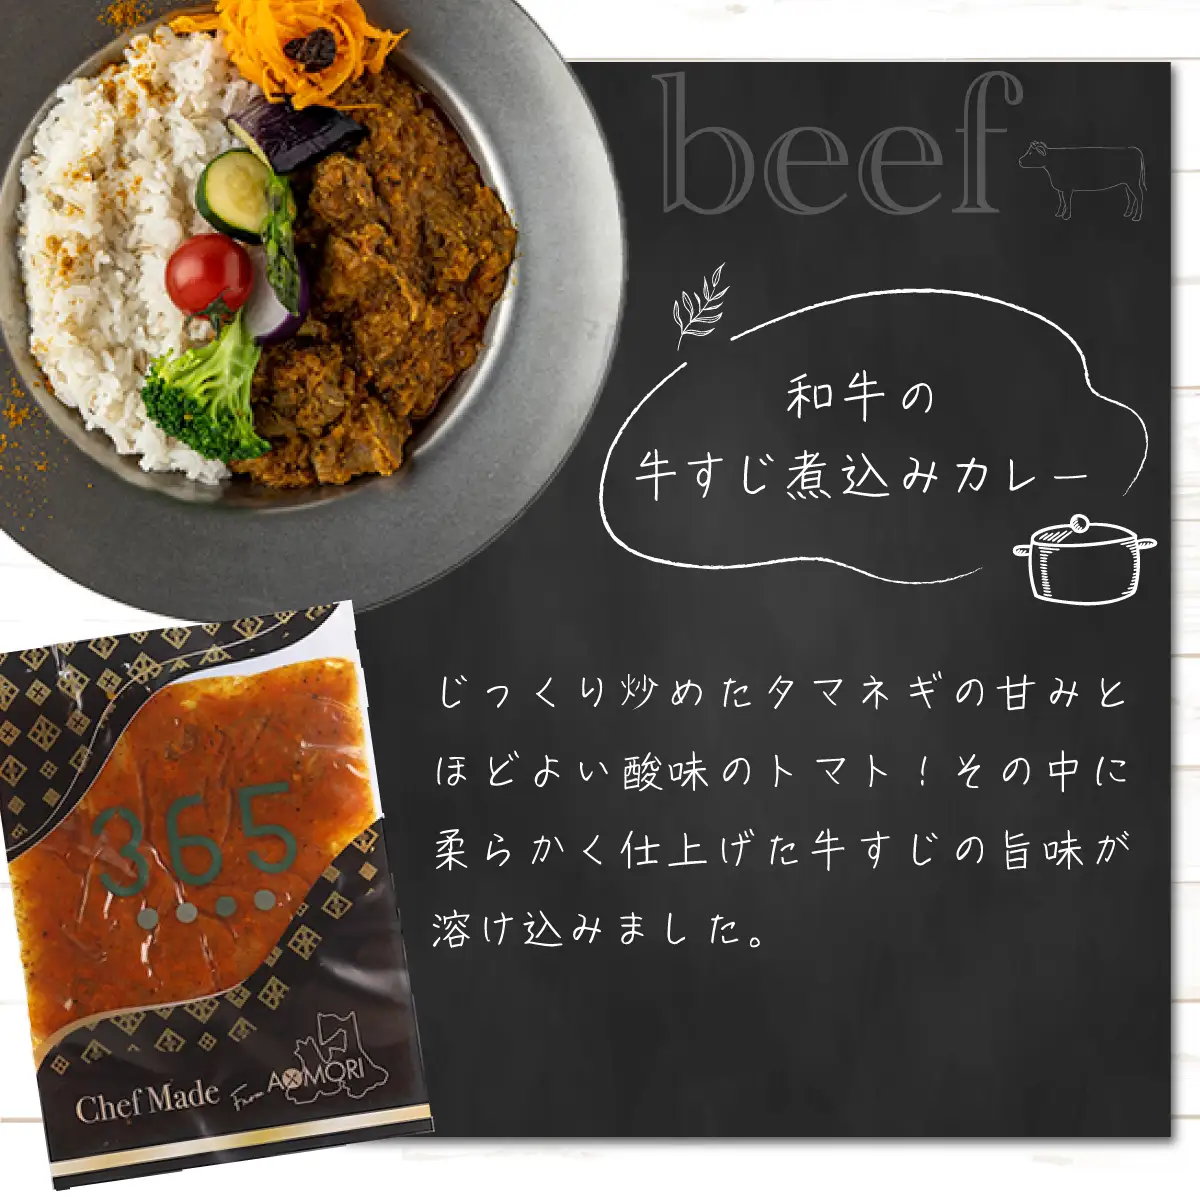 beef
和牛の
牛すじ煮込みカレー
じっくり炒めたタマネギの甘みと
ほどよい酸味のトマト！その中に
柔らかく仕上げた牛すじの旨味が
溶け込みました。
365
Chef Made From AOMORI